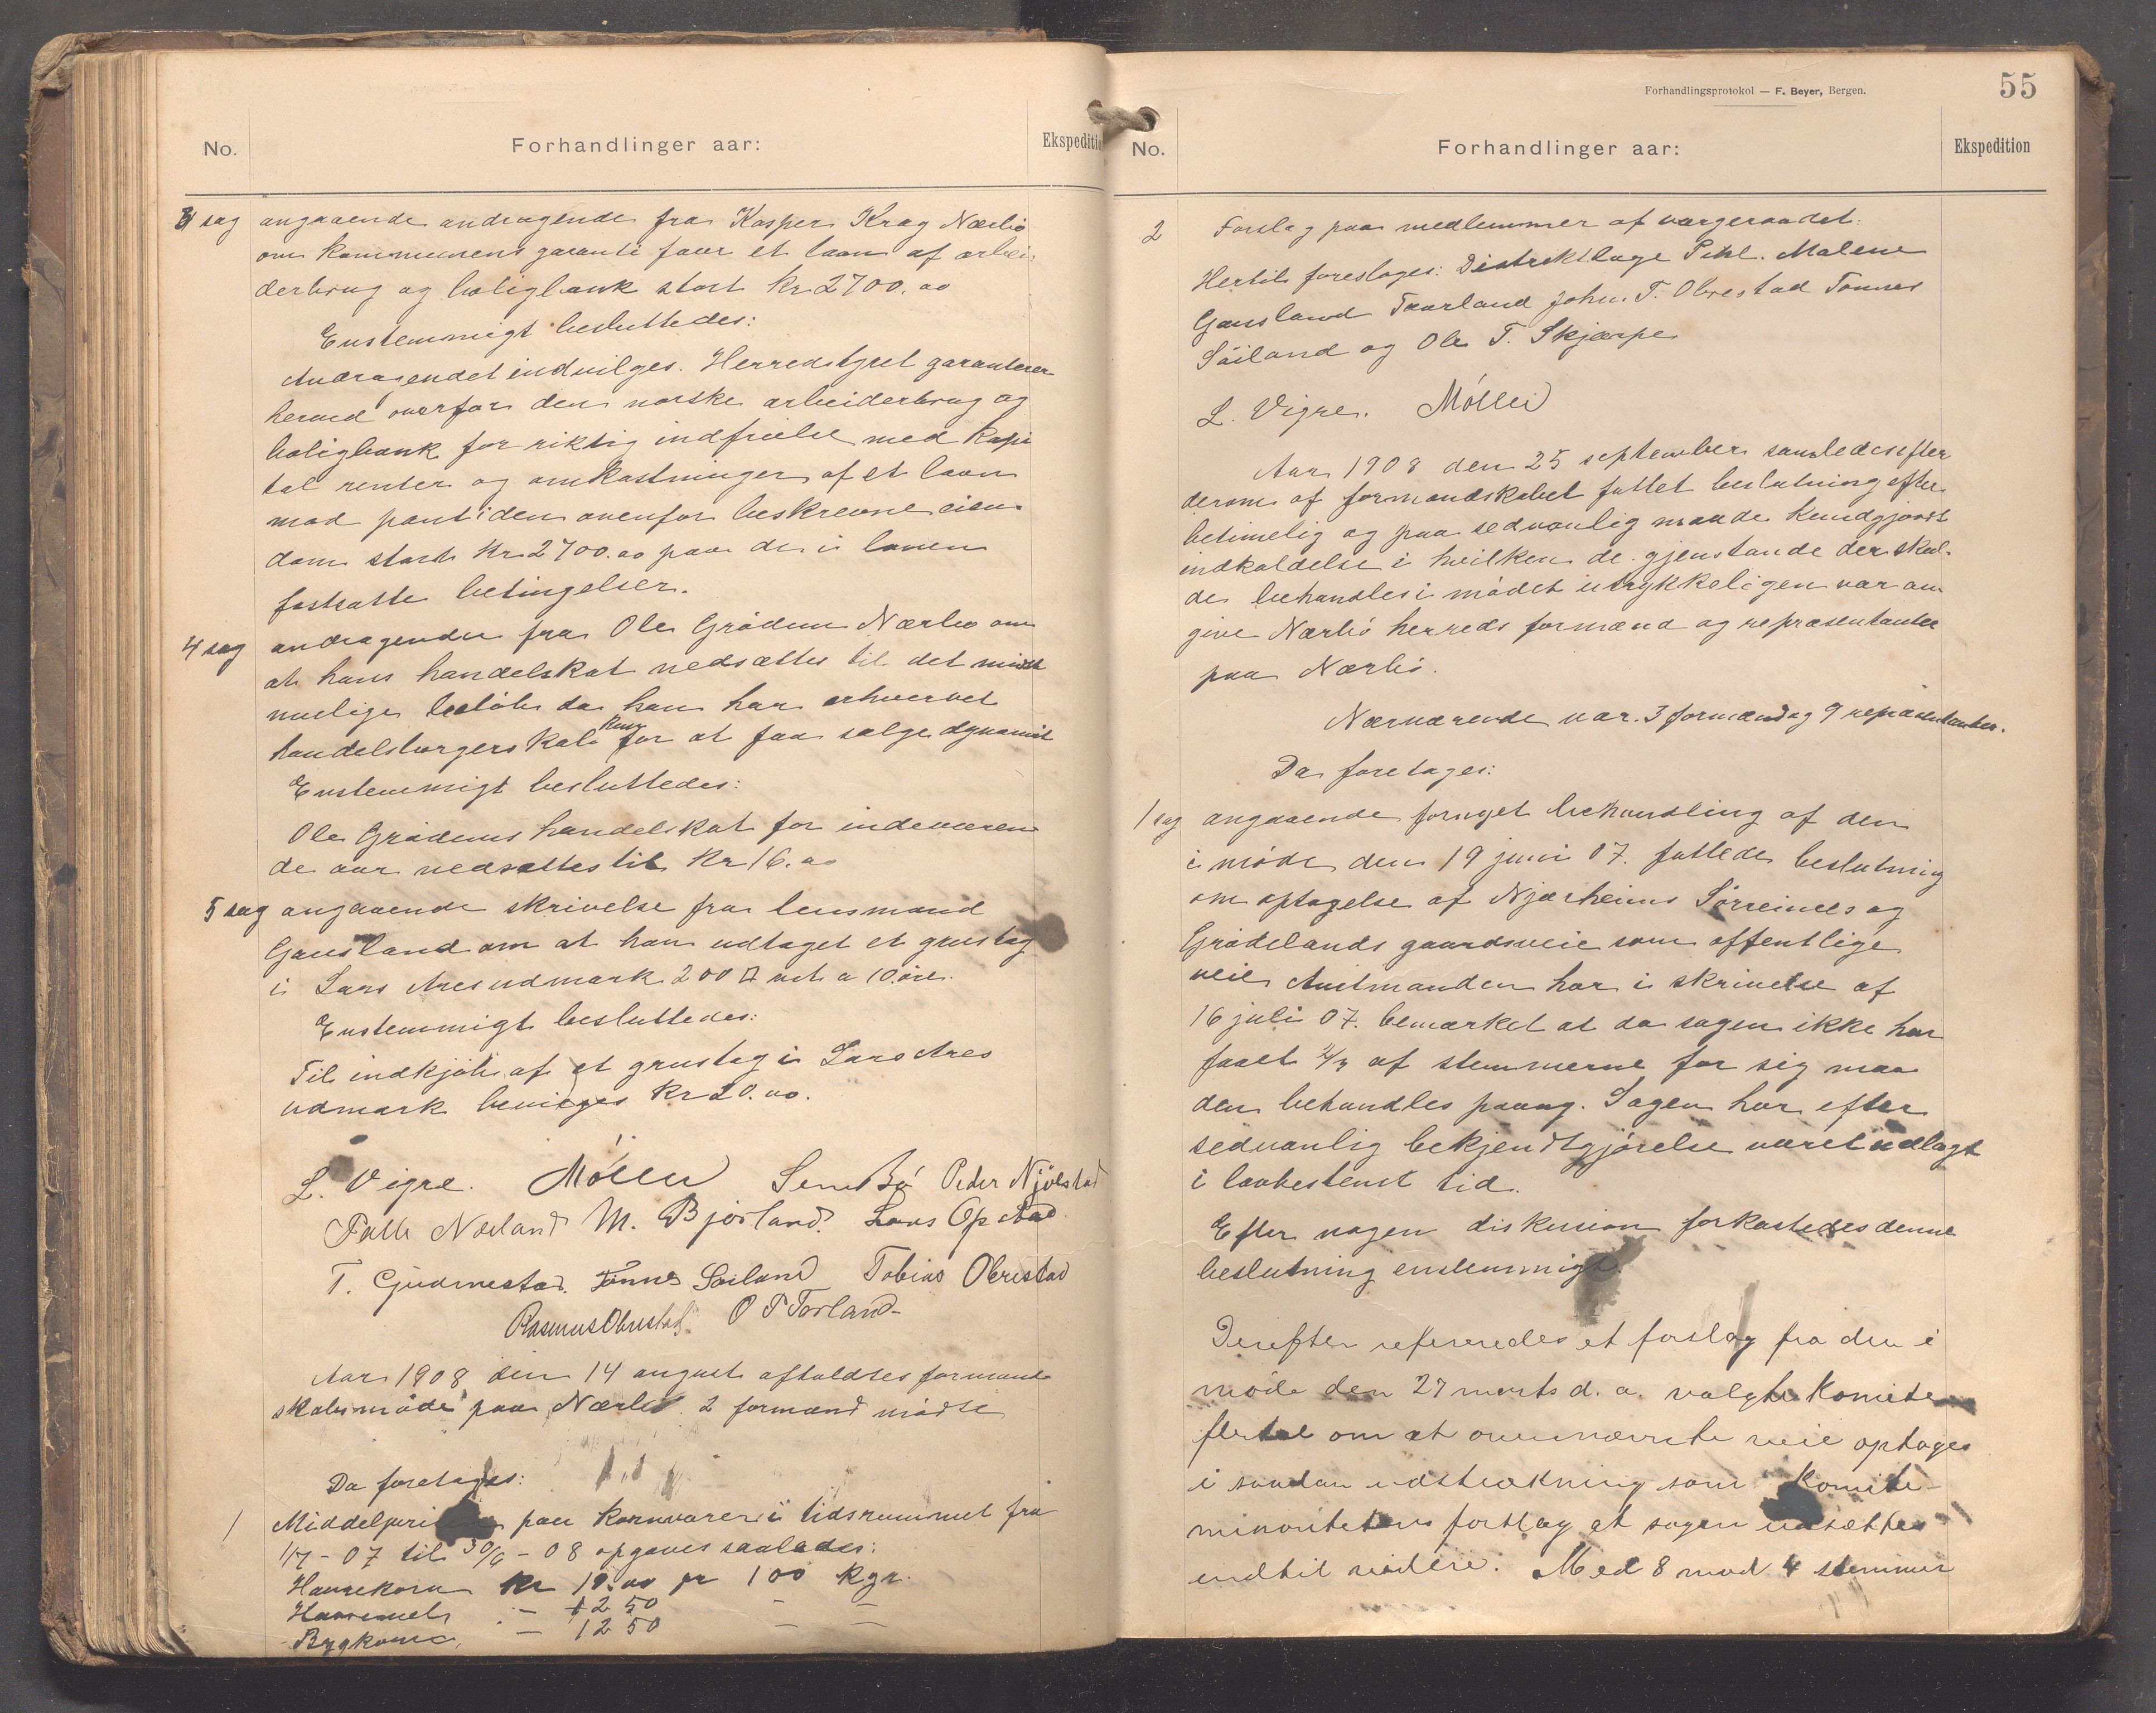 No.
Forhandlinger aar:
3 sag angaaende andragende fra Kasper Krag Nærbø
om kommunens garanti faar et laan af arbei
derbrug og boligbank stort kr 2700.00
Enstemmigt besluttedes:
Andragendet indvilges. Herredstyret garanterer
herved overfor den norske arbeiderbrug og
boligbank for riktig indfrielse med kapi
tal renter og omkostninger af et laan
mod pant i den ovenfor beskrevne eien
dom stort kr 2700.00 paa de i loven
fastsatte betingelser.
4 sag andragende fra Ole Grødem Nærbø om
at hans handelskat nedsættes til det mindst
mulige beløb da han har erhvervet
handelsborgerskab kun for at faa sælge dynamit
Enstemmigt besluttedes:
Ole Grødems handelskat for indeværen
de aar nedsættes til kr 16.00
5 sag angaaende skrivelse fra lensmand
Gausland om at han udtaget et grustag
i Lars Ares udmark 200 □ mt a 10 øre.
Enstemmigt besluttedes:
Til indkjøb af et grustag i Lars Ares
udmark bevilges kr 20.00.
L. Vigre. Möller Sem Bø Peder Njölstad
Palle Nærland M. Bjorland. Lars Opstad
T. Gudmestad. Tønnes Søiland Tobias Obrestad
Rasmus Obrestad. O P Torland
Aar 1908 den 14 august afholdtes formand
skabsmøde paa Nærbø. 2 formænd mødte
Da foretages:
1 paa kornvarer i tidsrummet fra
1/7 - 07 til 30/6 - 08 opgaves saaledes:
Havrekorn kr 19.00 pr 100 kgr.
Havremel - 12 50 - -
Bygkorn - 12 50 - -
Forhandlingsprotokol — F. Beyer, Bergen.
55
No.
Forhandlinger aar:
Ekspedition
2 Forslag paa medlemmer af værgeraadet:
Hertil foreslages: Distriktlæge Pihl. Malene
Gausland Taarland John. T. Obrestad Tønnes
Søiland og Ole T. Skjærpe
L. Vigre. Möller
Aar 1908 den 25 september samledes efter
derom af formandskabet fattet beslutning efter
betimelig og paa sedvanlig maade kundgjort
indkaldelse i hvilken de gjenstande der skul
de behandles i mødet utrykkeligen var an
give Nærbø herreds formænd og repræsentanter
paa Nærbø.
Nærværende var. 3 formænd og 9 repræsentanter.
Da foretages:
1 sag angaaende fornyet behandling af den
i møde den 19 juni 07. fattede beslutning
om optagelse af Njærheims Sørreimes og
Grødelands gaardsveie som offentlige
veie Amtmanden har i skrivelse af
16 juli 07. bemærket at da sagen ikke har
faaet 2/3 af stemmerne for sig maa
den behandles paany. Sagen har efter
sedvanlig bekjendtgjørelse været udlagt
i lovbestemt tid.
Efter nogen diskusion forkastedes denne
beslutning enstemmigt.
Derefter refereredes et forslag fra den i
møde den 27 marts d. a. valgte komite
flertal om at ovennævnte veie optages
i saadan udstrækning som komite-
minoritetens forslag at sagen udsættes
indtil videre. Med 8 mod 4 stemmer